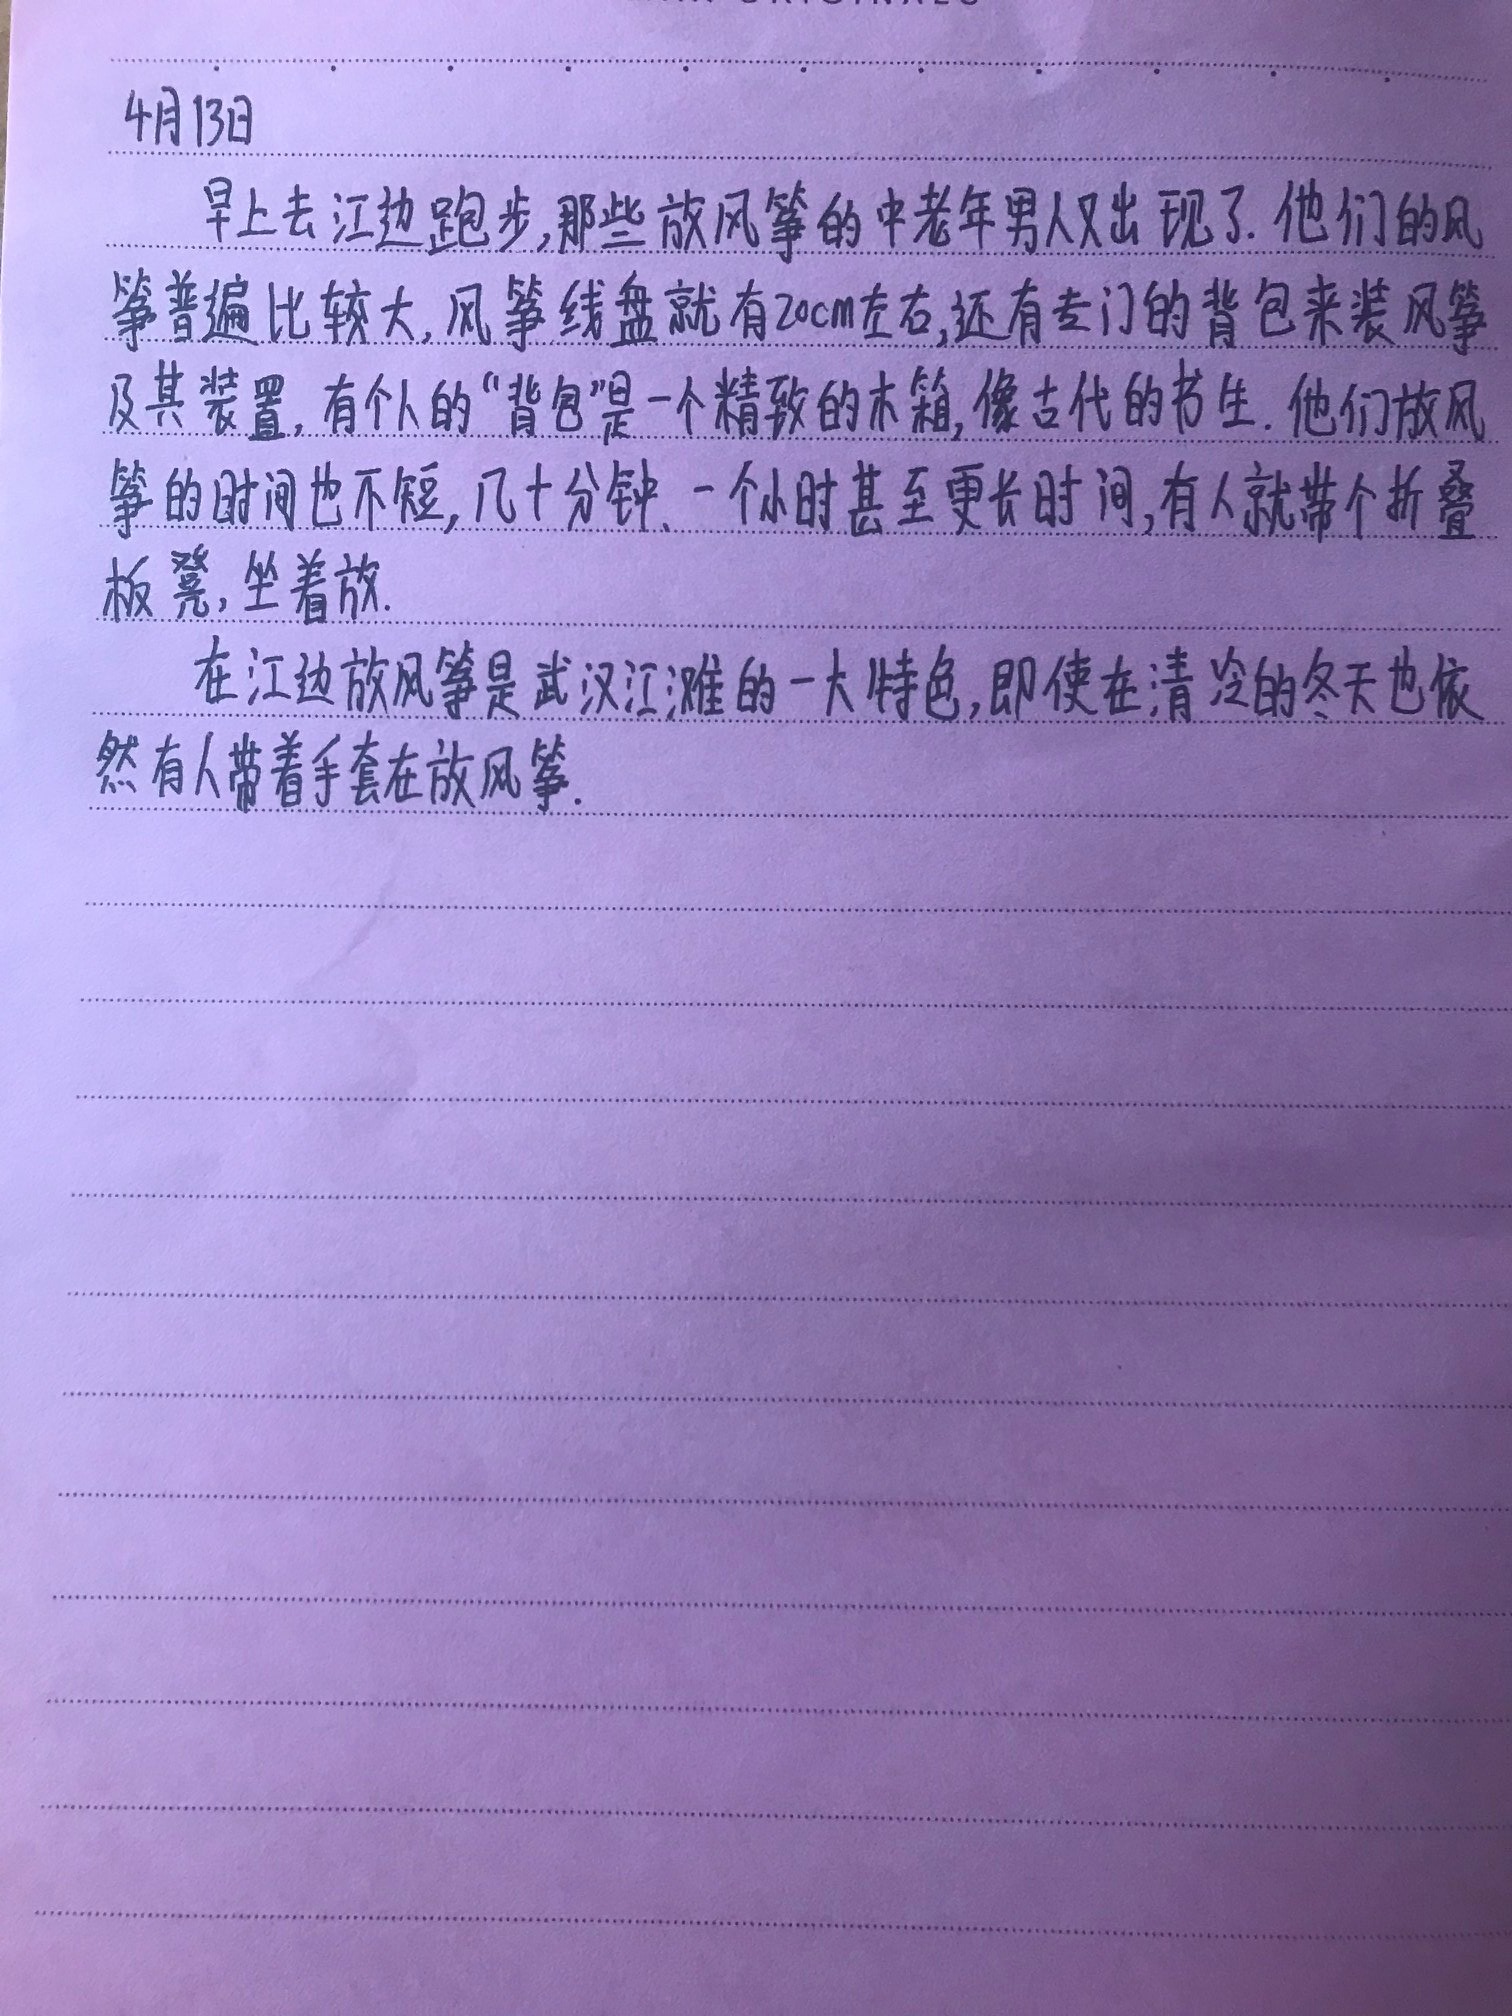 4月13日
早上去江边跑步,那些放风筝的中老年男人又出现了.他们的风
筝普遍比较大,风筝线盘就有20cm左右,还有专门的背包来装风筝
及其装置,有个人的“背包”是一个精致的木箱,像古代的书生.他们放风
筝的时间也不短,几十分钟、一个小时甚至更长时间,有人就带个折叠
板凳,坐着放.
在江边放风筝是武汉江滩的一大特色,即使在清冷的冬天也依
然有人带着手套在放风筝.